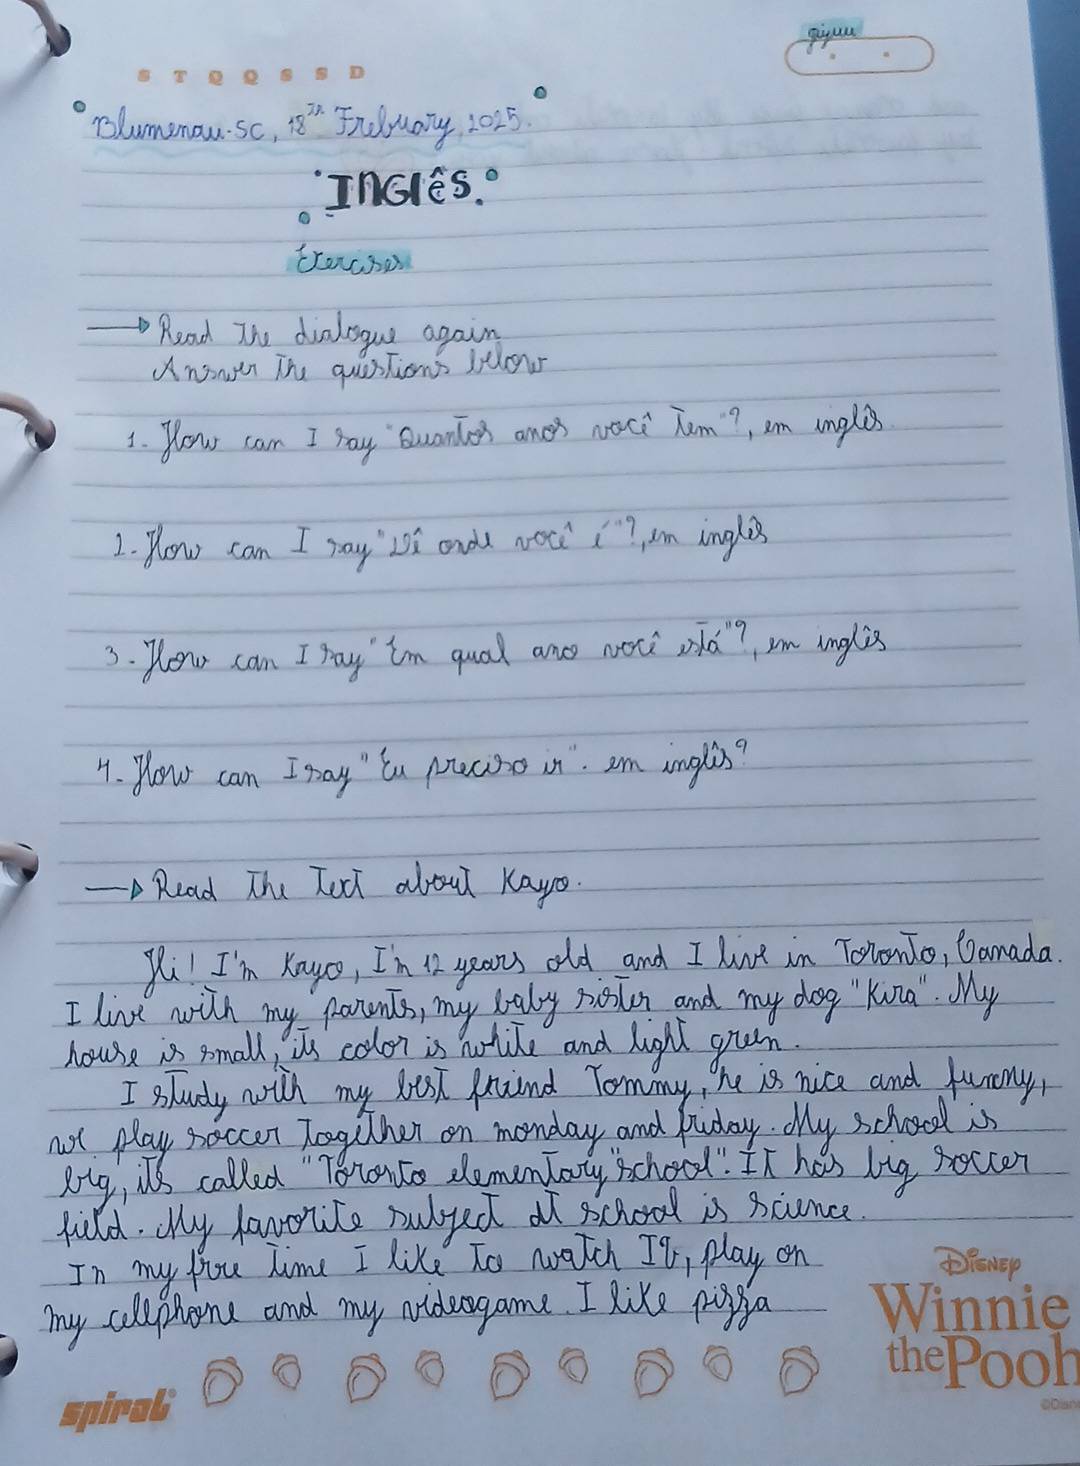 S T Q Q S S D
Blumenau-SC, 18TH Frebuary, 2025.
INGlês.
Exercises
Read The dialogue again
Answer The questions below
1- How can I say "Quantos anos você Tem"?, em inglês
2- How can I say "Dê onde você é"?, em inglês
3- How can I say "Em qual ano você está"?, em inglês
4- How can I say "Eu preciso ir". em inglês?
Read The Text about Kayo.
Hi! I'm Kayo, I'm 12 years old and I live in Toronto, Canada.
I live with my parents, my baby sister and my dog "Kira". My
house is small, its color is white and light green.
I study with my best friend Tommy, he is nice and funny,
we play soccer Together on monday and friday. My school is
big, its called "Toronto elementary school". It has big soccer
field. My favorite subject at school is science.
In my free Time I like To watch TV, play on
my cellphone and my videogame. I like pizza
Disney
Winnie
the Pooh
©Disn
spiral